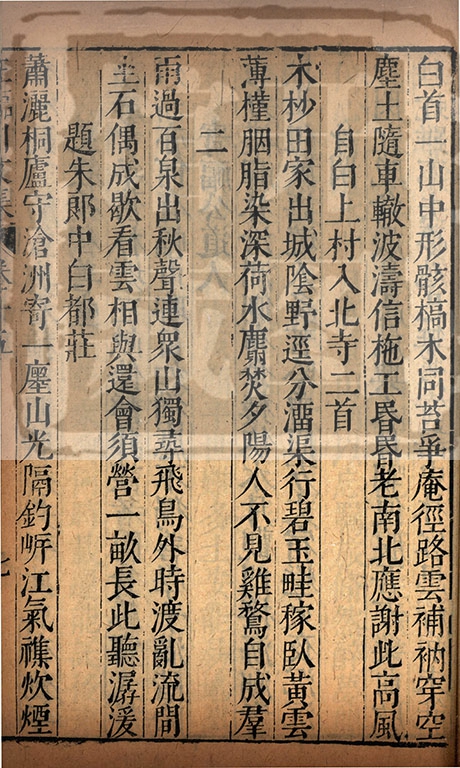 白首一山中形骸槁木同苔爭庵徑路雲補衲穿空
塵土隨車轍波濤信柂工昏昏老南北應謝此高風
自白上村入北寺二首
木杪田家出城陰野逕分溜渠行碧玉畦稼臥黃雲
薄槿胭脂染深荷水麝焚夕陽人不見雞鶩自成羣
二
雨過百泉出秋聲連衆山獨尋飛鳥外時渡亂流間
坐石偶成歇看雲相與還會須營一畝長此聽潺湲
題朱郎中白都莊
蕭灑桐廬守滄洲寄一廛山光隔釣岸江氣襍炊煙